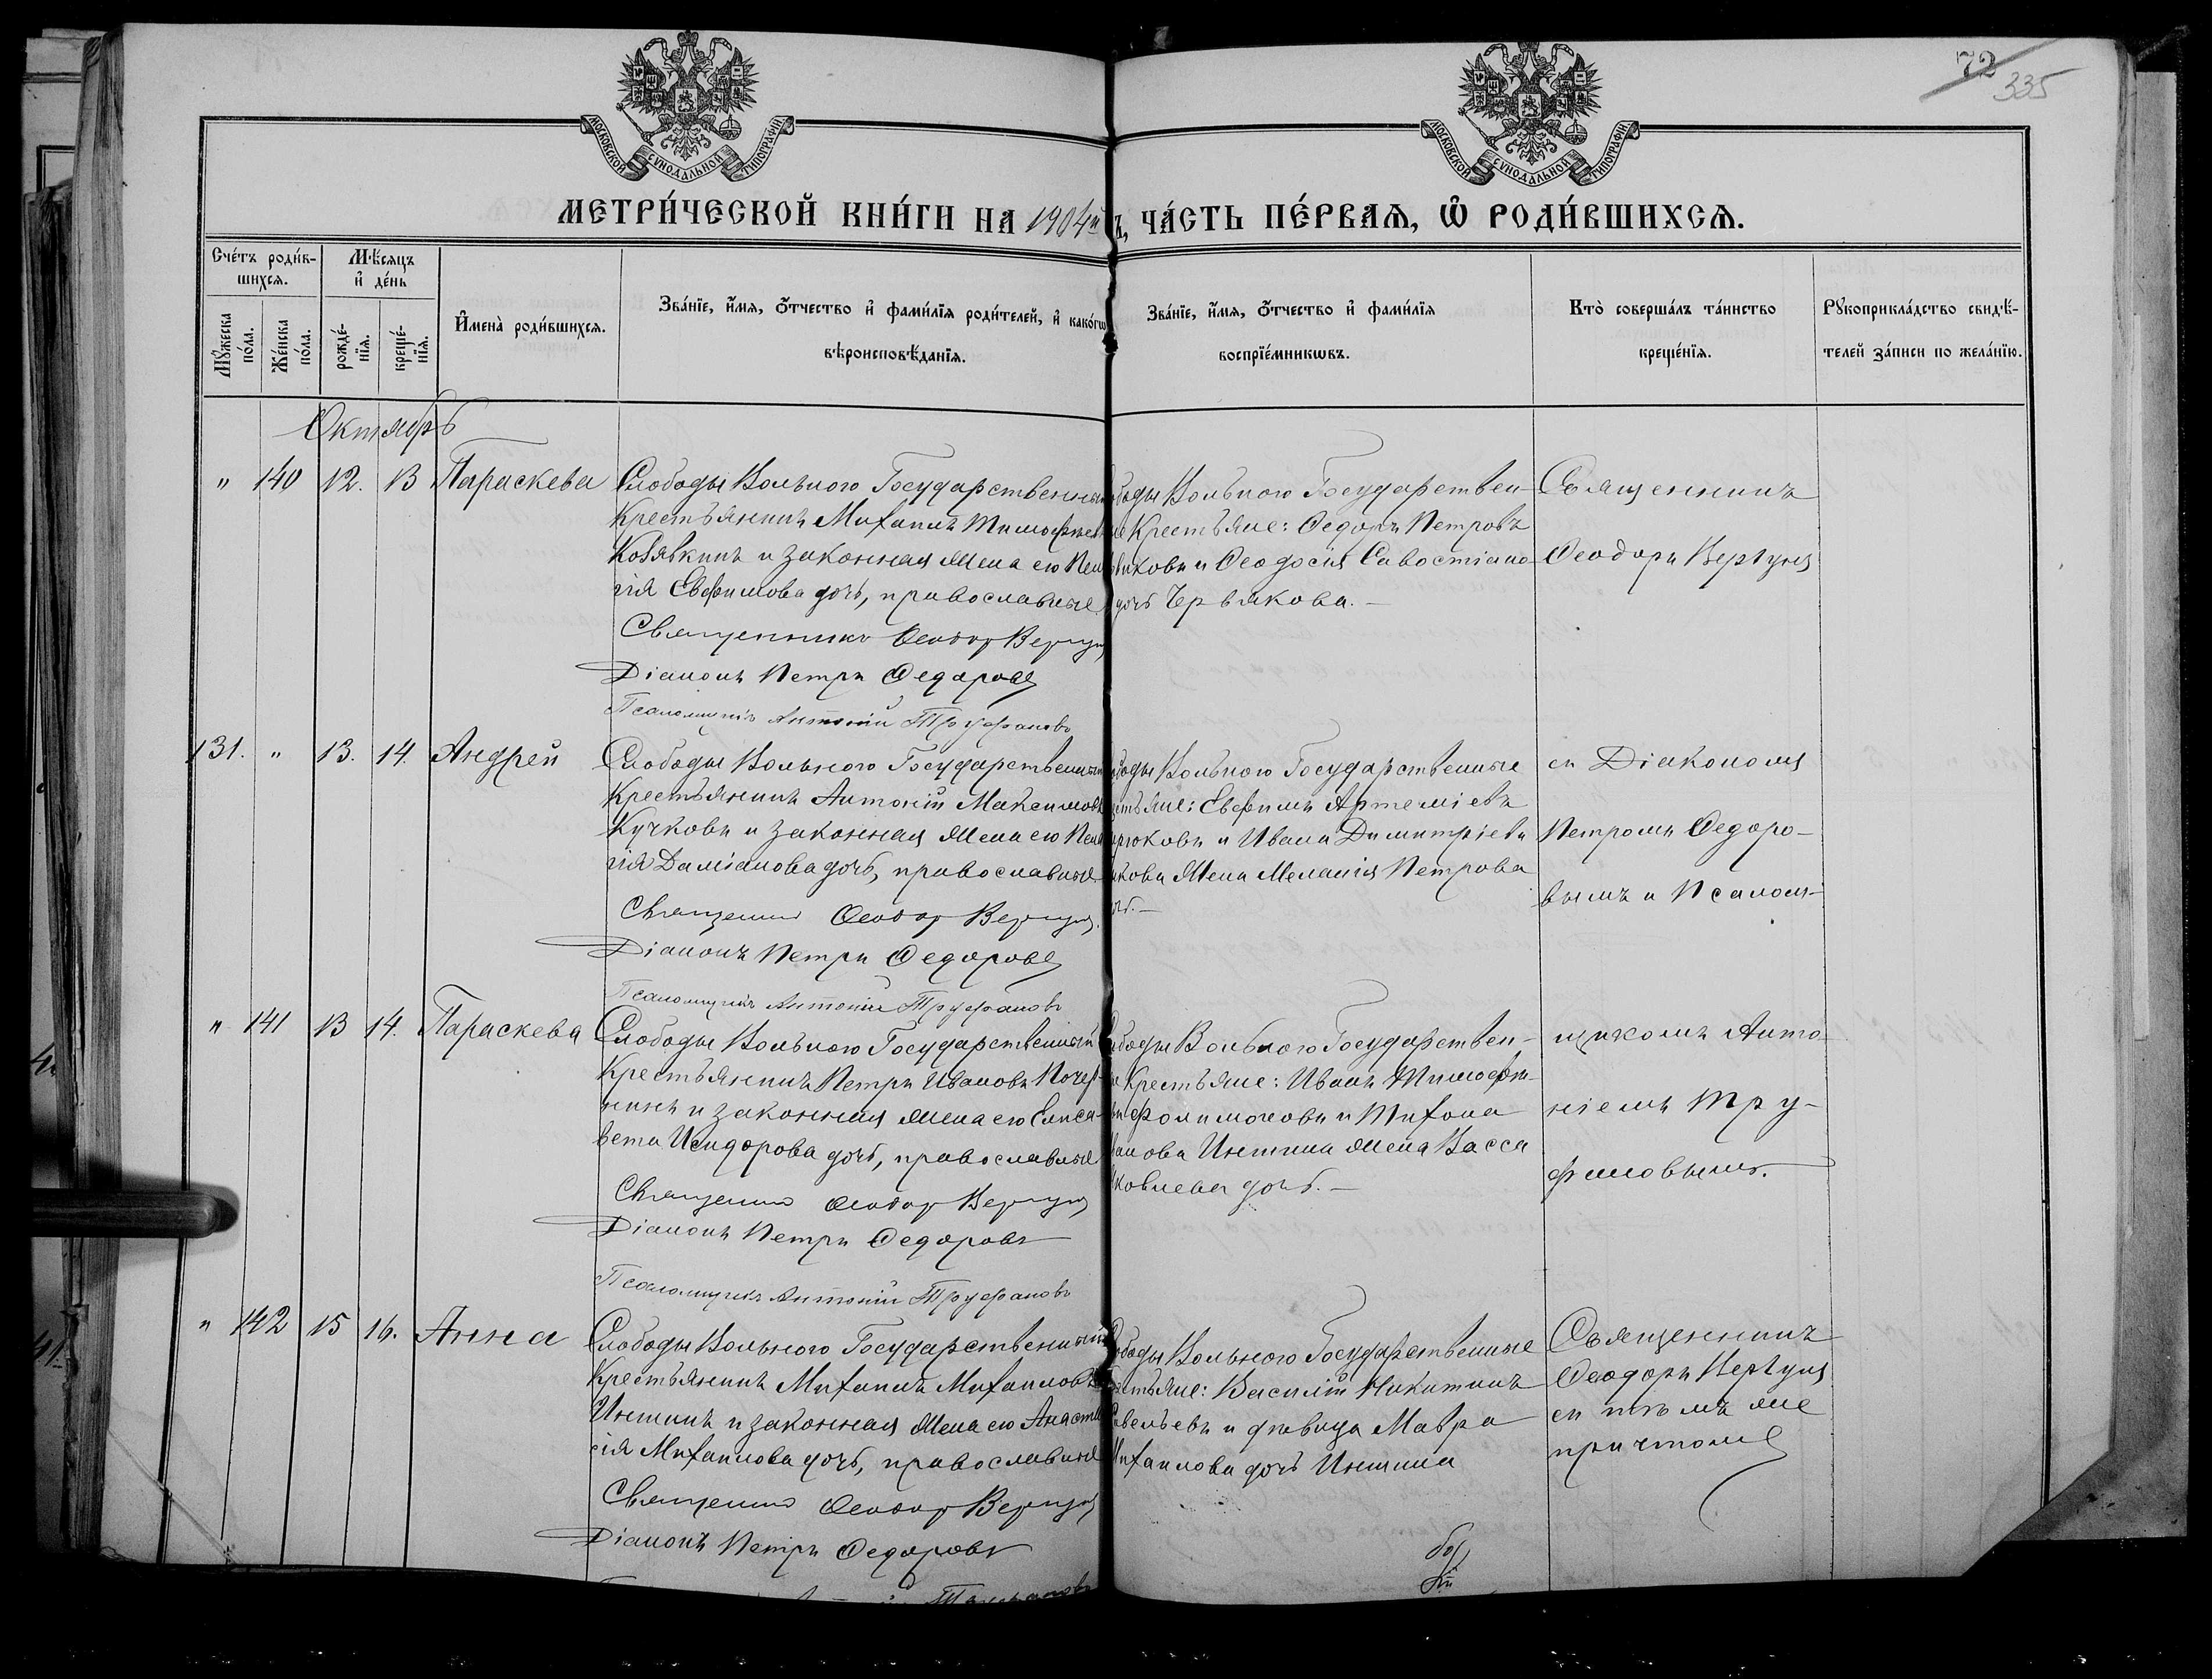 72
335
МОСКОВСКОЙ СУНОДАЛЬНОЙ ТИПОГРАФІИ
МОСКОВСКОЙ СУНОДАЛЬНОЙ ТИПОГРАФІИ
МЕТРИ́ЧЕСКОЙ КНИ́ГИ НА 1904й
ЧА́СТЬ ПЕ́РВАѦ, Ѽ РОДИ́ВШИХСѦ.
Сче́тъ роди́в-
шихсѧ.
Мꙋ́жеска
по́ла.
Же́нска
по́ла.
Мѣ́сѧцъ
и҆ де́нь
рожде́-
нїѧ.
креще́-
нїѧ.
И҆мена̀ роди́вшихсѧ.
Зва́нїе, и҆́мѧ, ѻ҆́тчество и҆ фами́лїѧ роди́телей, и҆ како́гѡ
вѣроисповѣ́данїѧ.
Зва́нїе, и҆́мѧ, ѻ҆́тчество и҆ фами́лїѧ
воспрїе́мникѡвъ.
Кто̀ соверша́лъ та́инство
креще́нїѧ.
Рꙋкоприкла́дство свидѣ́-
телей за́писи по жела́нїю.
Октябрь
" 140 12. 13 Параскева
Слободы Вольного Государственный
Крестьянинъ Михаилъ Тимофеевъ
Кобявкинъ и законная жена его Пела
гія Евфимова дочь, православные
Священникъ Ѳеодоръ Вергунъ
Діаконъ Петръ Федоровъ
Псаломщикъ Антоній Труфановъ
боды Вольного Государствен-
ые Крестьяне: Федоръ Петровъ
виковъ и Ѳеодосія Савостіано
дочь Червякова.-
Священникъ
Ѳеодоръ Вергунъ
131. " 13. 14. Андрей
Слободы Вольного Государственный
Крестьянинъ Антоній Максимовъ
Кучковъ и законная жена его Пела
гія Даміанова дочь, православные
Священникъ Ѳеодоръ Вергунъ
Діаконъ Петръ Федоровъ
Псаломщикъ Антоній Труфановъ
боды Вольного Государственные
стьяне: Евфимъ Артеміевъ
рюковъ и Ивана Димитріева
кова жена Меланія Петрова
очь.-
съ Діакономъ
Петромъ Федоро-
вымъ и Псалом-
" 141 13 14. Параскева
Слободы Вольного Государственный
Крестьянинъ Петръ Ивановъ Почер-
нинъ и законная жена его Елиса-
вета Исидорова дочь, православные
Священникъ Ѳеодоръ Вергунъ
Діаконъ Петръ Федоровъ
Псаломщикъ Антоній Труфановъ
боды Вольного Государствен-
е Крестьяне: Иванъ Тимофе-
въ Фолимоновъ и Тихона
анова Иншина жена Васса
ковлева дочь.-
щикомъ Анто-
ніемъ Тру-
фановымъ.
" 142 15 16. Анна
Слободы Вольного Государственный
Крестьянинъ Михаилъ Михаиловъ
Иншинъ и законная жена его Анаста
сія Михаилова дочь, православные
Священникъ Ѳеодоръ Вергунъ
Діаконъ Петръ Федоровъ
боды Вольного Государственные
стьяне: Василій Никитинъ
Савельевъ и дѣвица Мавра
Михаилова дочь Иншина
Священникъ
Ѳеодоръ Вергунъ
съ тѣмъ же
причтомъ